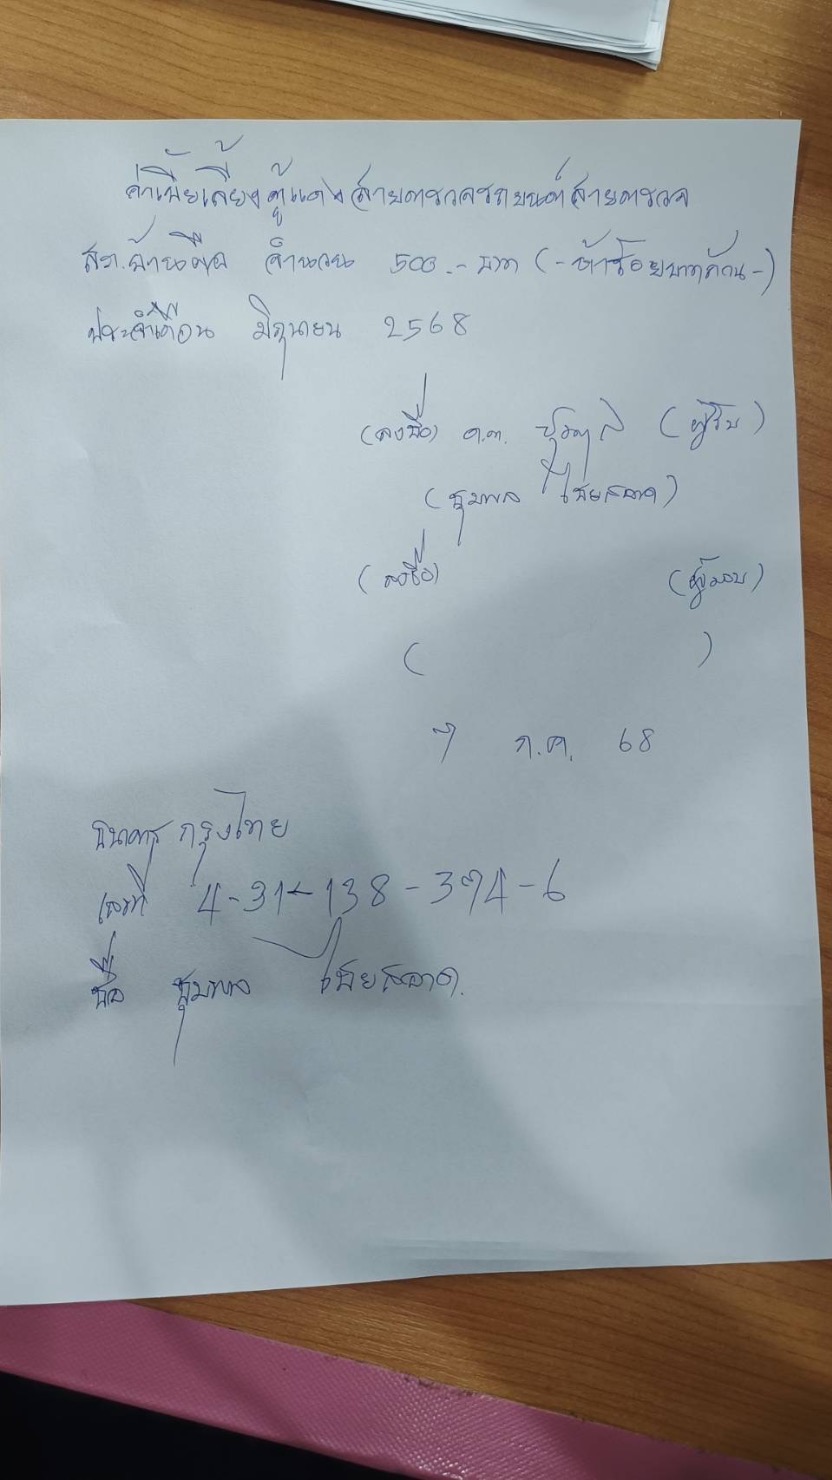 ค่าเบี้ยเลี้ยงตู้แดงสายตรวจรถยนต์สายตรวจ
สภ.บ้านผือ จำนวน 500.- บาท (-ห้าร้อยบาทถ้วน-)
ประจำเดือน มิถุนายน 2568
(ลงชื่อ) ด.ต. (ผู้รับ)
(ชุมพล ไชยสอาด)
(ลงชื่อ) (ผู้มอบ)
( )
7 ก.ค. 68
ธนาคาร กรุงไทย
เลขที่ 4-31-138-394-6
ชื่อ ชุมพล ไชยสอาด.